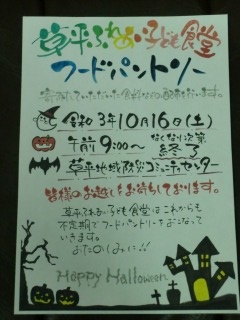 草平ふれあい子ども食堂
フードパントリー
寄附していただいた食料などの配布を行います。
令和3年10月16日(土)
午前9:00〜 なくなり次第終了
草平地域防災コミュニティセンター
皆様のお越しをお待ちしております。
草平ふれあい子ども食堂はこれからも
不定期でフードパントリーをおこなって
いきます。
おたのしみに!!
Happy Halloween